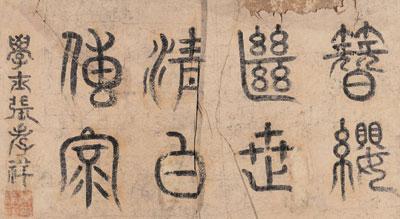 簪纓
繼世
清白
傳家
學士張孝祥